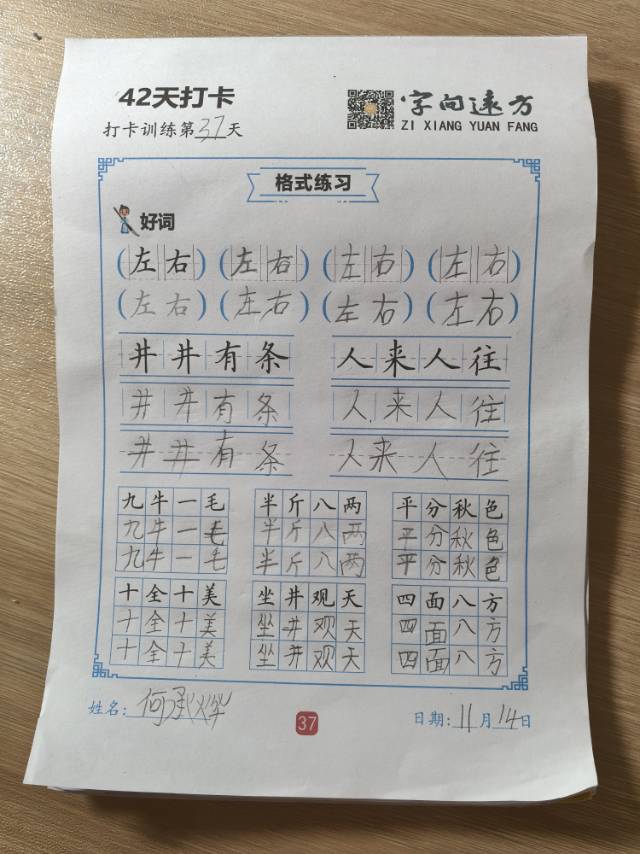 42天打卡
字向远方
打卡训练第37天
ZI XIANG YUAN FANG
格式练习
好词
(左右)(左右)(左右)(左右)
(左右)(左右)(左右)(左右)
井井有条 人来人往
井井有条 人来人往
井井有条 人来人往
九牛一毛 半斤八两 平分秋色
九牛一毛 半斤八两 平分秋色
九牛一毛 半斤八两 平分秋色
十全十美 坐井观天 四面八方
十全十美 坐井观天 四面八方
十全十美 坐井观天 四面八方
姓名:何承烨 37 日期:11月14日